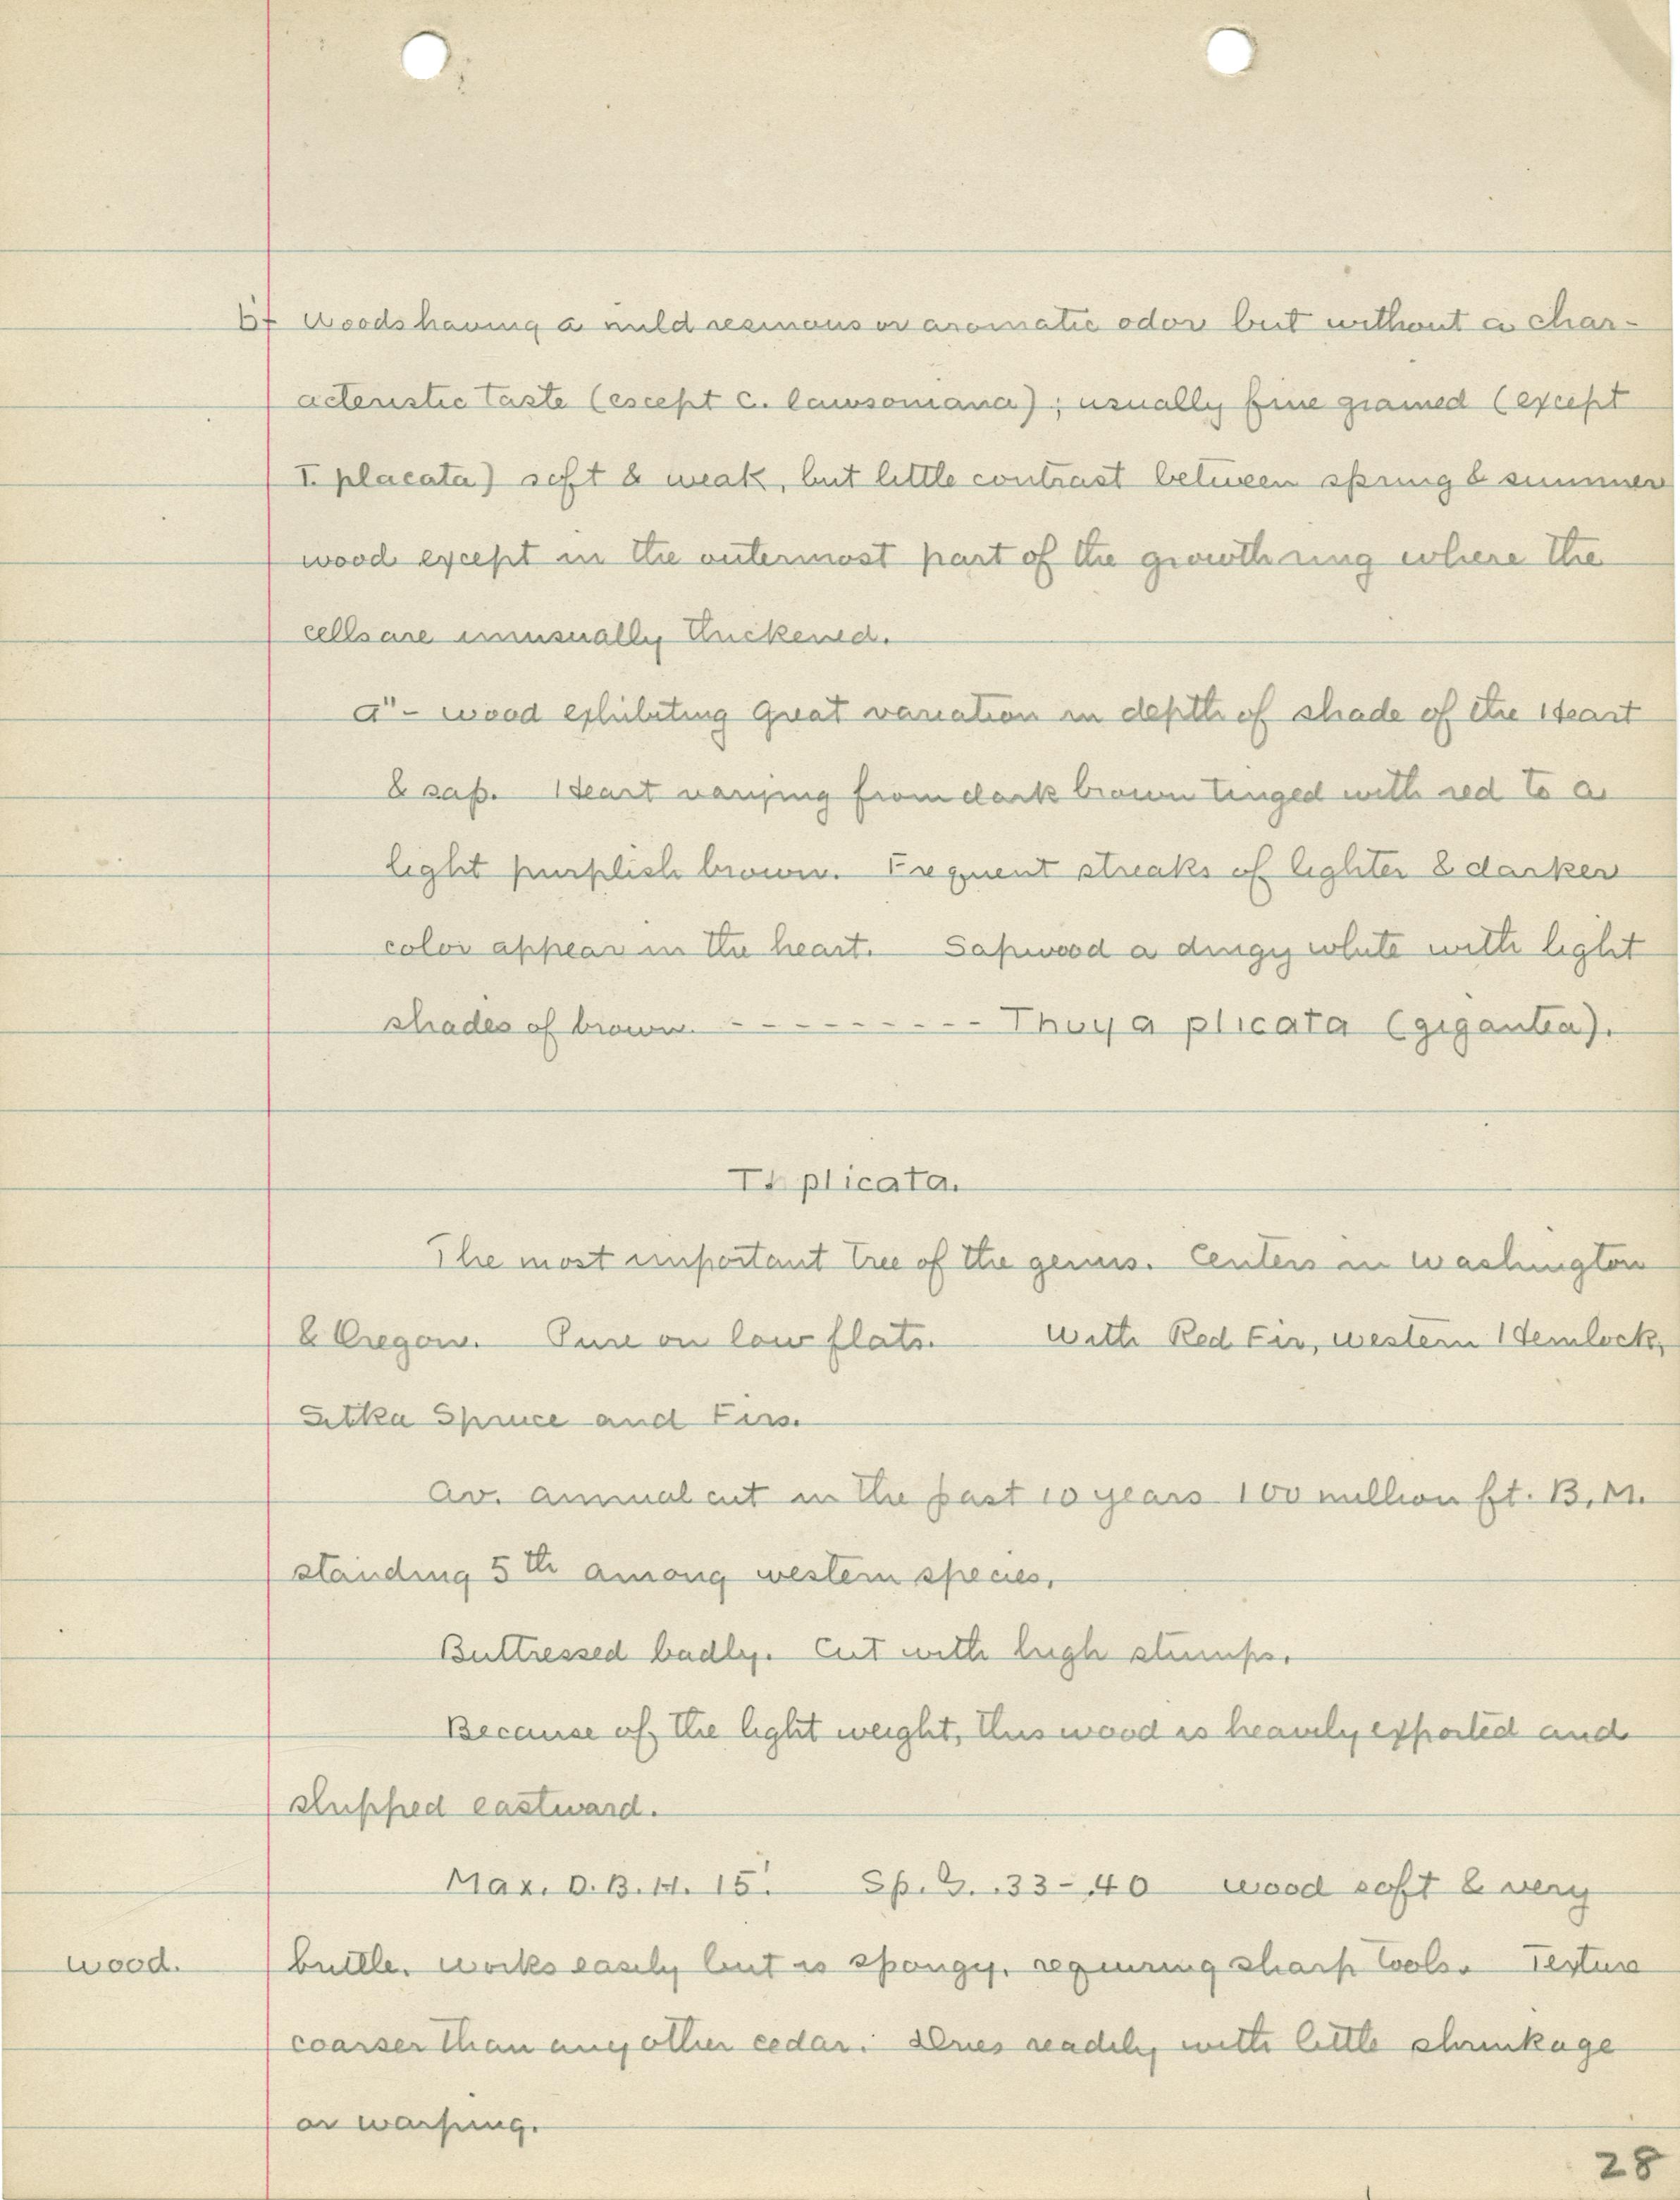 b' Woods having a mild resinous or aromatic odor but without a char-
acteristic taste (escept C. lawsoniana); usually fine grained (except
T. placata) soft & weak, but little contrast between spring & summer
wood except in the outermost part of the growth ring where the
cells are unusually thickened.
a" - wood exhibiting great variation in depth of shade of the Heart
& sap. Heart varying from dark brown tinged with red to a
light purplish brown. Frequent streaks of lighter & darker
color appear in the heart. Sapwood a dingy white with light
shades of brown. --------- Thuya plicata (gigantea).
T. plicata.
The most important tree of the genus. Centers in Washington
& Oregon. Pure on low flats. With Red Fir, western Hemlock,
Sitka Spruce and Firs.
Av. annual cut in the past 10 years 100 million ft. B.M.
standing 5th among western species.
Buttressed badly. Cut with high stumps.
Because of the light weight, this wood is heavily exported and
shipped eastward.
Max. D.B.H. 15'. Sp. G. .33-.40 wood soft & very
wood. brittle. works easily but is spongy, requiring sharp tools. Texture
coarser than any other cedar. Dries readily with little shrinkage
or warping.
28